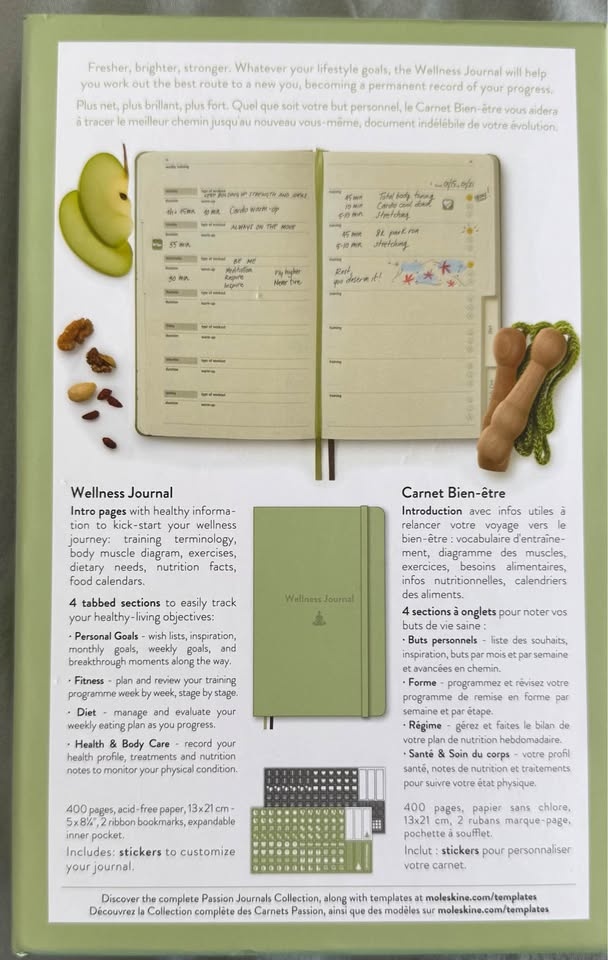 Fresher, brighter, stronger. Whatever your lifestyle goals, the Wellness Journal will help
you work out the best route to a new you, becoming a permanent record of your progress.
Plus net, plus brillant, plus fort. Quel que soit votre but personnel, le Carnet Bien-être vous aidera
à tracer le meilleur chemin jusqu'au nouveau vous-même, document indélébile de votre évolution.
type of workout
duration
warm-up
Cardio warm-up
type of workout
ALWAYS ON THE MOVE
35 min
BE ME
duration
warm-up
Meditation
Fly higher
30 min
Respire
Never tire
Inspire
type of workout
duration
warm-up
type of workout
duration
warm-up
type of workout
duration
warm-up
type of workout
duration
warm-up
45 min Total body toning
10 min Cardio cool down
5-10 min Stretching
45 min 8k park run
5-10 min stretching
Rest,
you deserve it!
training
training
training
training
Wellness Journal
Intro pages with healthy informa-
tion to kick-start your wellness
journey: training terminology,
body muscle diagram, exercises,
dietary needs, nutrition facts,
food calendars.
4 tabbed sections to easily track
your healthy-living objectives:
· Personal Goals - wish lists, inspiration,
monthly goals, weekly goals, and
breakthrough moments along the way.
· Fitness - plan and review your training
programme week by week, stage by stage.
· Diet - manage and evaluate your
weekly eating plan as you progress.
· Health & Body Care - record your
health profile, treatments and nutrition
notes to monitor your physical condition.
400 pages, acid-free paper, 13x21 cm -
5x8¼", 2 ribbon bookmarks, expandable
inner pocket.
Includes: stickers to customize
your journal.
Wellness Journal
Carnet Bien-être
Introduction avec infos utiles à
relancer votre voyage vers le
bien-être : vocabulaire d'entraîne-
ment, diagramme des muscles,
exercices, besoins alimentaires,
infos nutritionnelles, calendriers
des aliments.
4 sections à onglets pour noter vos
buts de vie saine :
· Buts personnels - liste des souhaits,
inspiration, buts par mois et par semaine
et avancées en chemin.
· Forme - programmez et révisez votre
programme de remise en forme par
semaine et par étape.
· Régime - gérez et faites le bilan de
votre plan de nutrition hebdomadaire.
· Santé & Soin du corps - votre profil
santé, notes de nutrition et traitements
pour suivre votre état physique.
400 pages, papier sans chlore,
13x21 cm, 2 rubans marque-page,
pochette à soufflet.
Inclut : stickers pour personnaliser
votre carnet.
Discover the complete Passion Journals Collection, along with templates at moleskine.com/templates
Découvrez la Collection complète des Carnets Passion, ainsi que des modèles sur moleskine.com/templates